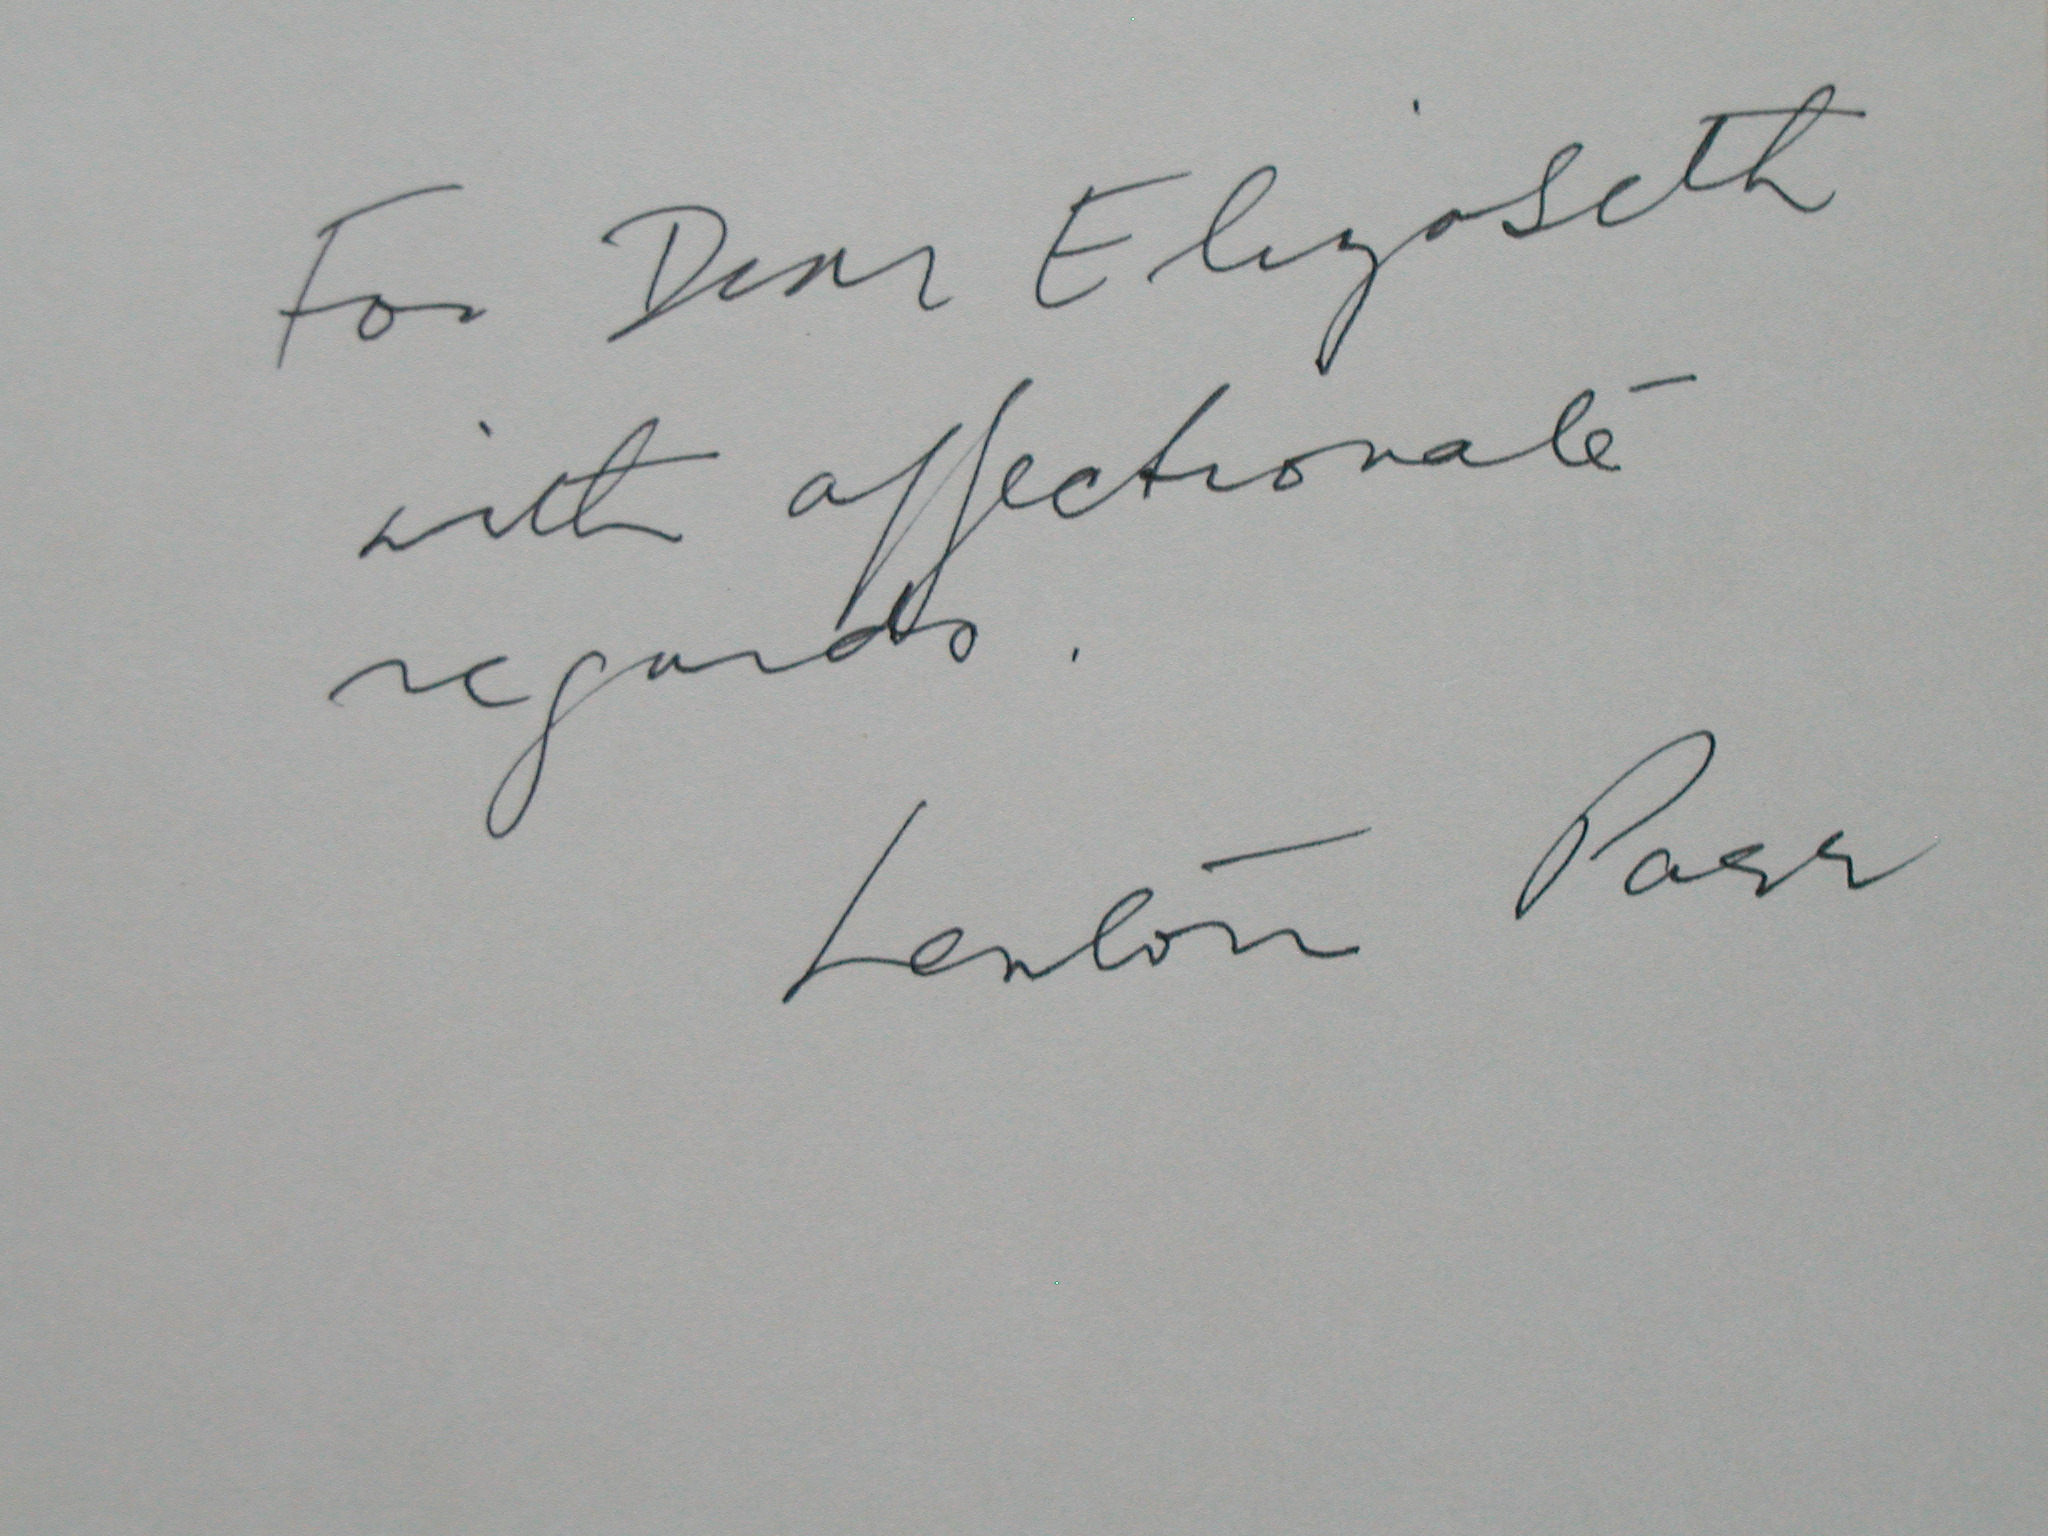 For Dear Elizabeth
with affectionate
regards.
Lenton Parr